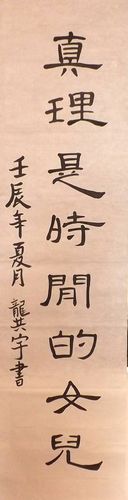 真理是時間的女兒
壬辰年夏月 龔宇書